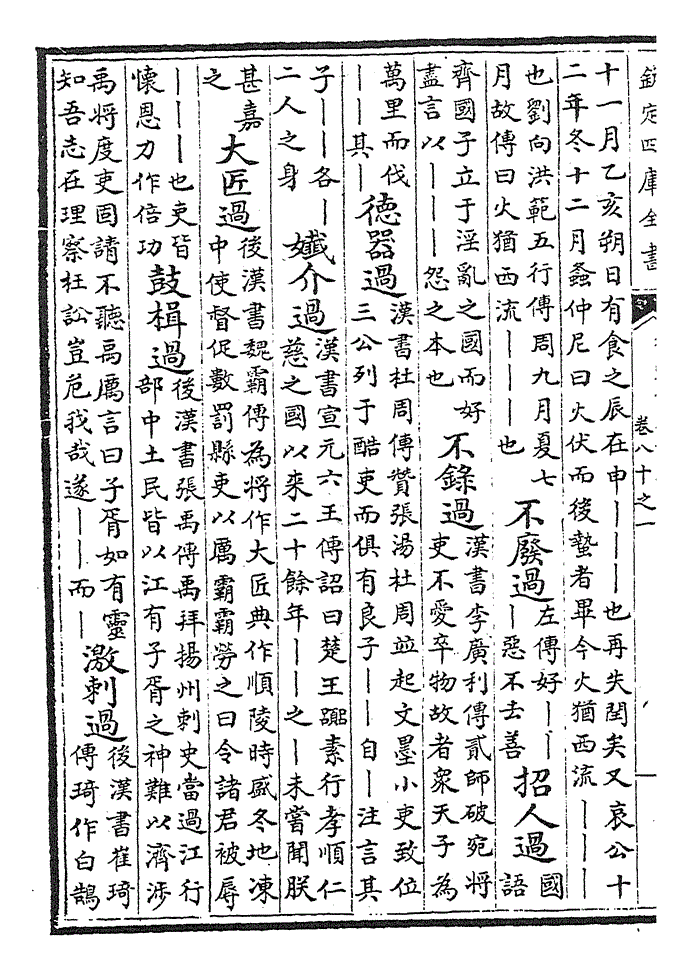 欽定四庫全書
卷八十之一
十一月乙亥朔日有食之辰在申｜｜｜｜也再失閏矣又哀公十
二年冬十二月螽仲尼曰火伏而後蟄者畢今火猶西流｜｜｜｜
也劉向洪範五行傳周九月夏七
月故傳曰火猶西流｜｜｜｜也
不廢過
左傳好｜｜
｜惡不去善
招人過
國
語
齊國子立于淫亂之國而好
盡言以｜｜｜｜怨之本也
不錄過
漢書李廣利傳貳師破宛將
吏不愛卒物故者衆天子為
萬里而伐
｜｜其｜
德器過
漢書杜周傳贊張湯杜周並起文墨小吏致位
三公列于酷吏而俱有良子｜｜自｜注言其
子｜｜各｜
二人之身
孅介過
漢書宣元六王傳詔曰楚王囂素行孝順仁
慈之國以來二十餘年｜｜之｜未嘗聞朕
甚嘉
之
大匠過
後漢書魏霸傳為將作大匠典作順陵時盛冬地凍
中使督促數罰縣吏以厲霸霸勞之曰令諸君被辱
｜｜｜也吏皆
懷恩力作倍功
鼓楫過
後漢書張禹傳禹拜揚州刺史當過江行
部中土民皆以江有子胥之神難以濟涉
禹將度吏固請不聽禹厲言曰子胥如有靈
知吾志在理察枉訟豈危我哉遂｜｜而｜
激刺過
後漢書崔琦
傳琦作白鵠